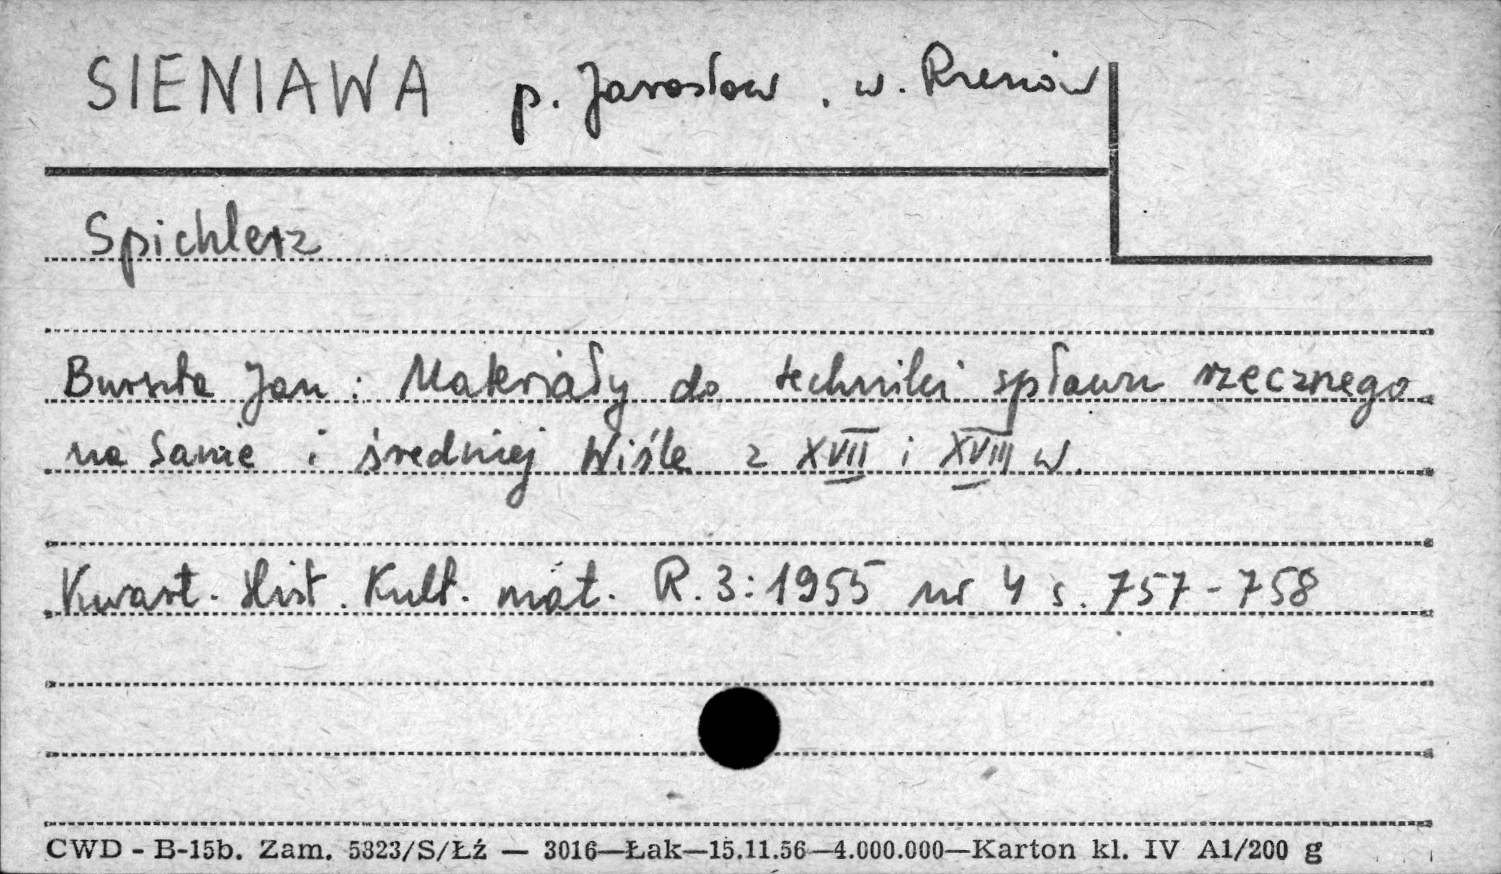 SIENIAWA p. Jarosław, w. Rzeszów
Spichlerz
Burszta Jan: Materiały do techniki spławu rzecznego
na Sanie i średniej Wiśle z XVII i XVIII w.
Kwart. Hist. Kult. mat. R. 3: 1955 nr 4 s. 757-758
CWD - B-15b. Zam. 5323/S/Łź — 3016—Łak—15.11.56—4.000.000—Karton kl. IV A1/200 g